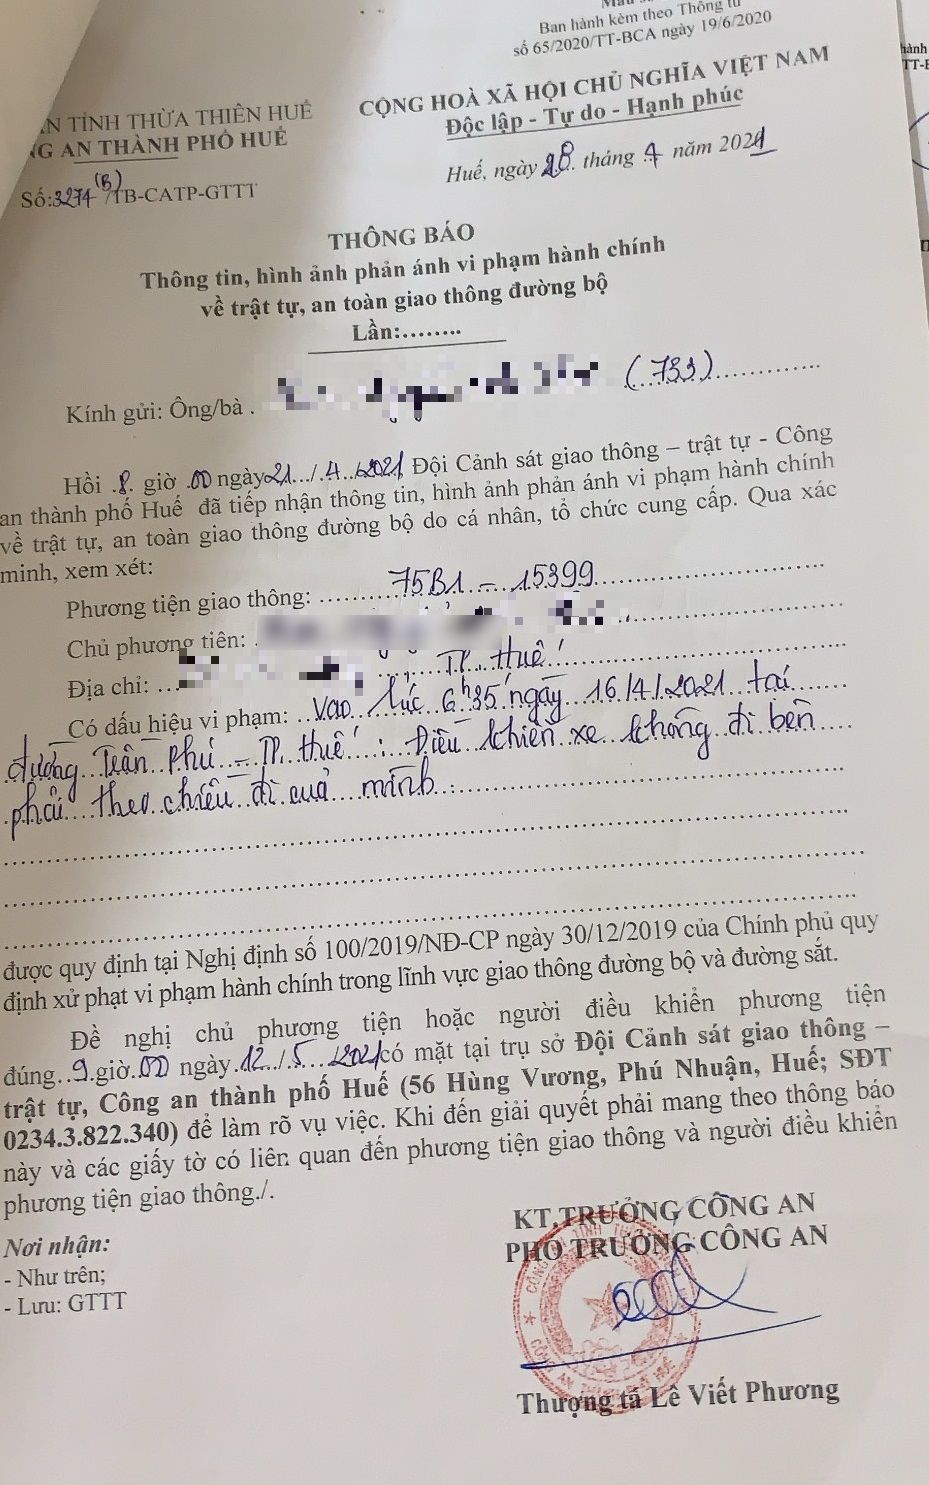 Ban hành kèm theo Thông tư
số 65/2020/TT-BCA ngày 19/6/2020
AN TỈNH THỪA THIÊN HUẾ
NG AN THÀNH PHỐ HUẾ
CỘNG HOÀ XÃ HỘI CHỦ NGHĨA VIỆT NAM
Độc lập - Tự do - Hạnh phúc
Số:3274(B)/TB-CATP-GTTT
Huế, ngày 28. tháng 4 năm 2021
THÔNG BÁO
Thông tin, hình ảnh phản ánh vi phạm hành chính
về trật tự, an toàn giao thông đường bộ
Lần:........
Kính gửi: Ông/bà . (733)
Hồi .8. giờ .00 ngày 21../.4../2021, Đội Cảnh sát giao thông – trật tự - Công
an thành phố Huế đã tiếp nhận thông tin, hình ảnh phản ánh vi phạm hành chính
về trật tự, an toàn giao thông đường bộ do cá nhân, tổ chức cung cấp. Qua xác
minh, xem xét:
Phương tiện giao thông: 75B1 – 15399
Chủ phương tiên:
Địa chỉ: ... TP. Huế
Có dấu hiệu vi phạm: ..Vào lúc 6h35' ngày 16/4/2021 tại
đường Trần Phú – TP. Huế : Điều khiển xe không đi bên
phải theo chiều đi của mình.
được quy định tại Nghị định số 100/2019/NĐ-CP ngày 30/12/2019 của Chính phủ quy
định xử phạt vi phạm hành chính trong lĩnh vực giao thông đường bộ và đường sắt.
Đề nghị chủ phương tiện hoặc người điều khiển phương tiện
đúng..9.giờ.00 ngày.12../.5.../2021 có mặt tại trụ sở Đội Cảnh sát giao thông –
trật tự, Công an thành phố Huế (56 Hùng Vương, Phú Nhuận, Huế; SĐT
0234.3.822.340) để làm rõ vụ việc. Khi đến giải quyết phải mang theo thông báo
này và các giấy tờ có liên quan đến phương tiện giao thông và người điều khiển
phương tiện giao thông./.
KT.TRƯỞNG CÔNG AN
PHÓ TRƯỞNG CÔNG AN
Nơi nhận:
- Như trên;
- Lưu: GTTT
Thượng tá Lê Viết Phương